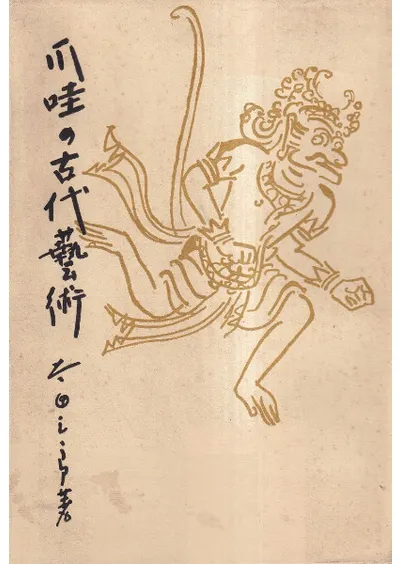 爪哇の古代藝術
太田三郎著